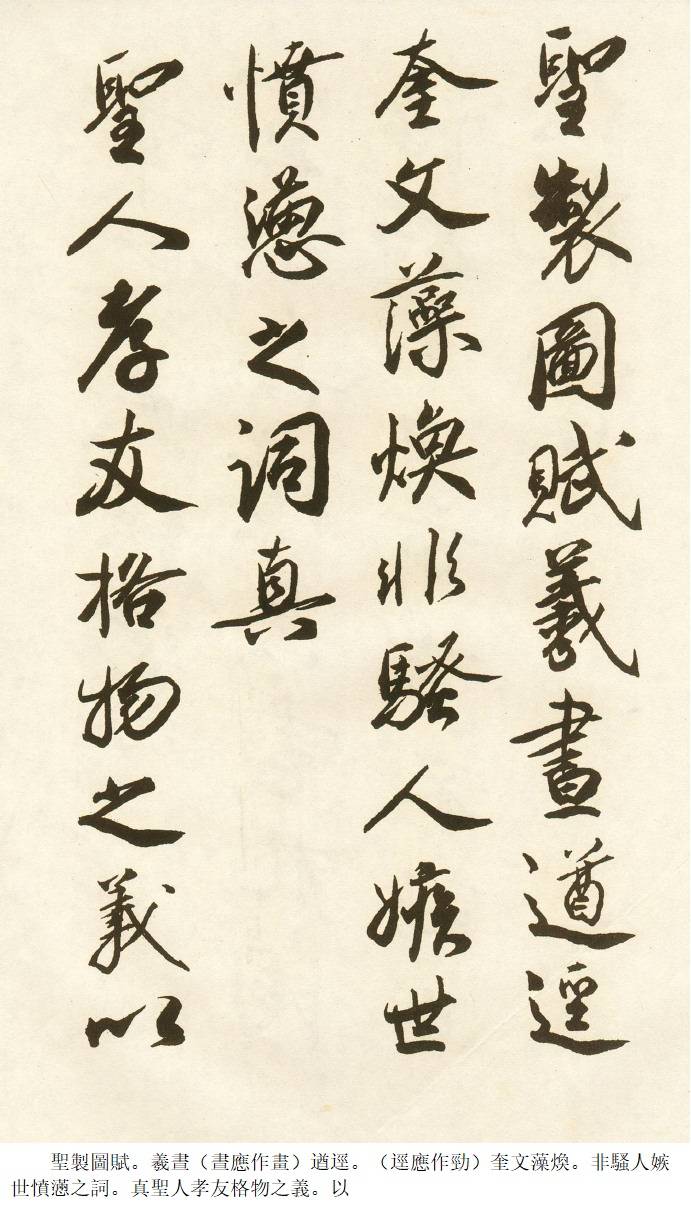 聖製圖賦羲晝遒逕
奎文藻煥非騷人嫉世
憤懣之詞真
聖人孝友格物之義以
聖製圖賦。羲晝（晝應作畫）遒逕。（逕應作勁）奎文藻煥。非騷人嫉
世憤懣之詞。真聖人孝友格物之義。以